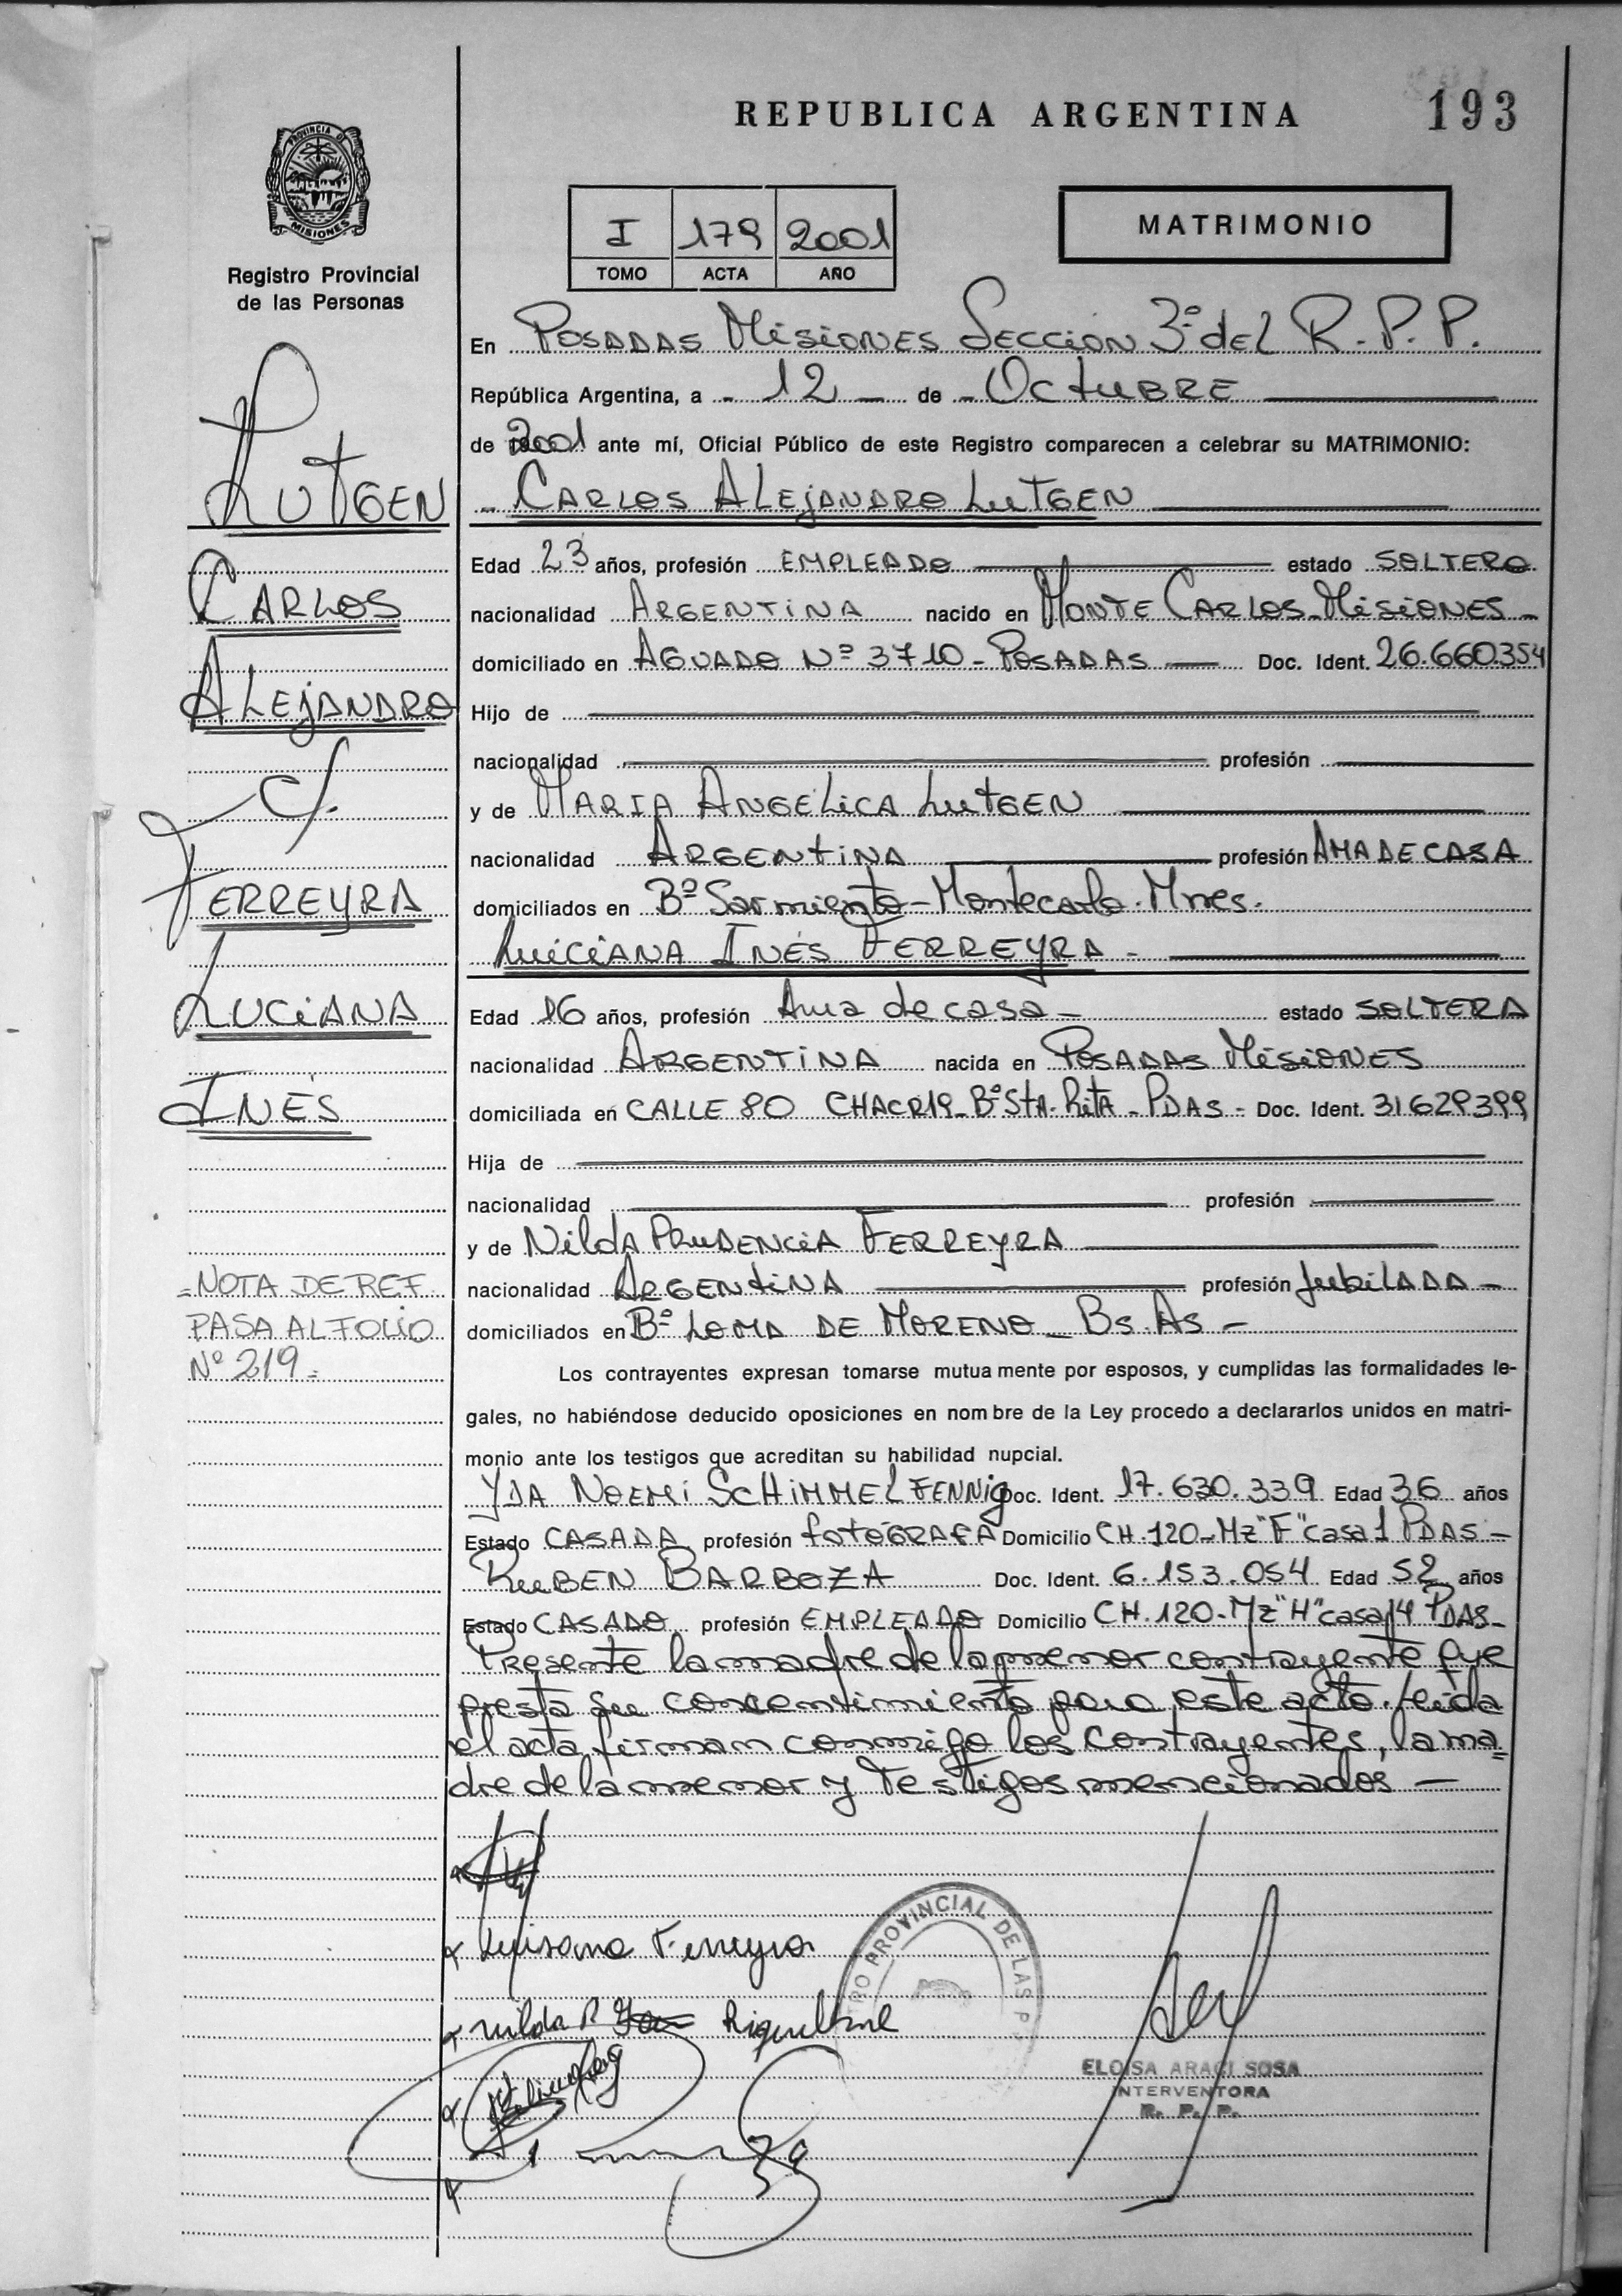 REPUBLICA ARGENTINA
193
PROVINCIA DE MISIONES
Registro Provincial
de las Personas
I 179 2001
TOMO ACTA AÑO
MATRIMONIO
En POSADAS MISIONES SECCION 3º DEL R.P.P.
República Argentina, a - 12 - de - OCTUBRE
de 2001 ante mí, Oficial Público de este Registro comparecen a celebrar su MATRIMONIO:
- CARLOS ALEJANDRO LUTGEN
Edad 23 años, profesión EMPLEADO estado SOLTERO
nacionalidad ARGENTINA nacido en MONTE CARLOS-MISIONES-
domiciliado en AGUADO Nº 3710 - POSADAS Doc. Ident. 26.660.354
Hijo de
nacionalidad profesión
y de MARIA ANGELICA LUTGEN
nacionalidad ARGENTINA profesión AMA DE CASA
domiciliados en Bº Sarmiento - Montecarlo. Mnes.
LUICIANA INÉS FERREYRA -
Edad 16 años, profesión Ama de casa - estado SOLTERA
nacionalidad ARGENTINA nacida en POSADAS MISIONES
domiciliada en CALLE 80 CHACR19- Bº STA. RITA - PDAS - Doc. Ident. 31629399
Hija de
nacionalidad profesión
y de NILDA PRUDENCIA FERREYRA
nacionalidad ARGENTINA profesión JUBILADA -
domiciliados en Bº LOMA DE MORENO - BS. AS -
Los contrayentes expresan tomarse mutuamente por esposos, y cumplidas las formalidades le-
gales, no habiéndose deducido oposiciones en nombre de la Ley procedo a declararlos unidos en matri-
monio ante los testigos que acreditan su habilidad nupcial.
YDA NOEMI SCHIMMELFENNIG Doc. Ident. 17.630.339 Edad 36 años
Estado CASADA profesión FOTÓGRAFA Domicilio CH.120-Mz"F"casa 1 PDAS-
RUBEN BARBOZA Doc. Ident. 6.153.054 Edad 52 años
Estado CASADO profesión EMPLEADO Domicilio CH.120-Mz"H"casa14 PDAS-
Presente la madre de la menor contrayente que
presta su consentimiento para este acto. Leida
el acta firman conmigo los contrayentes, la ma=
dre de la menor y testigos mencionados -
LUTGEN
CARLOS
ALEJANDRO
c/.
FERREYRA
LUCIANA
INÉS
= NOTA DE REF.
PASA AL FOLIO
Nº 219 =
Luisana Ferreyra
nilda P. Riquelme
PROVINCIAL DE LAS P
ELOISA ARACI SOSA
INTERVENTORA
R. P. P.